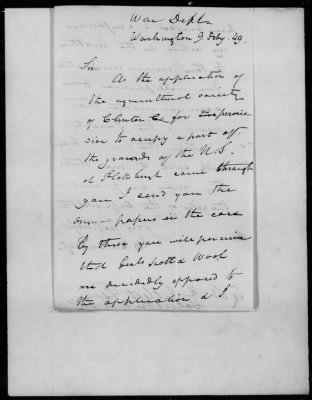 War Dept
Washington 9 Feby. 49.
Sir
As the application of
the agricultural society
of Clinton Co for the permis
sion to occupy a part off
the grounds of the U.S.
at Plattsburgh came through
you I send you the
original papers in the case
By these you will perceive
that Genls Scott & Wool
are decidedly opposed to
the application & I